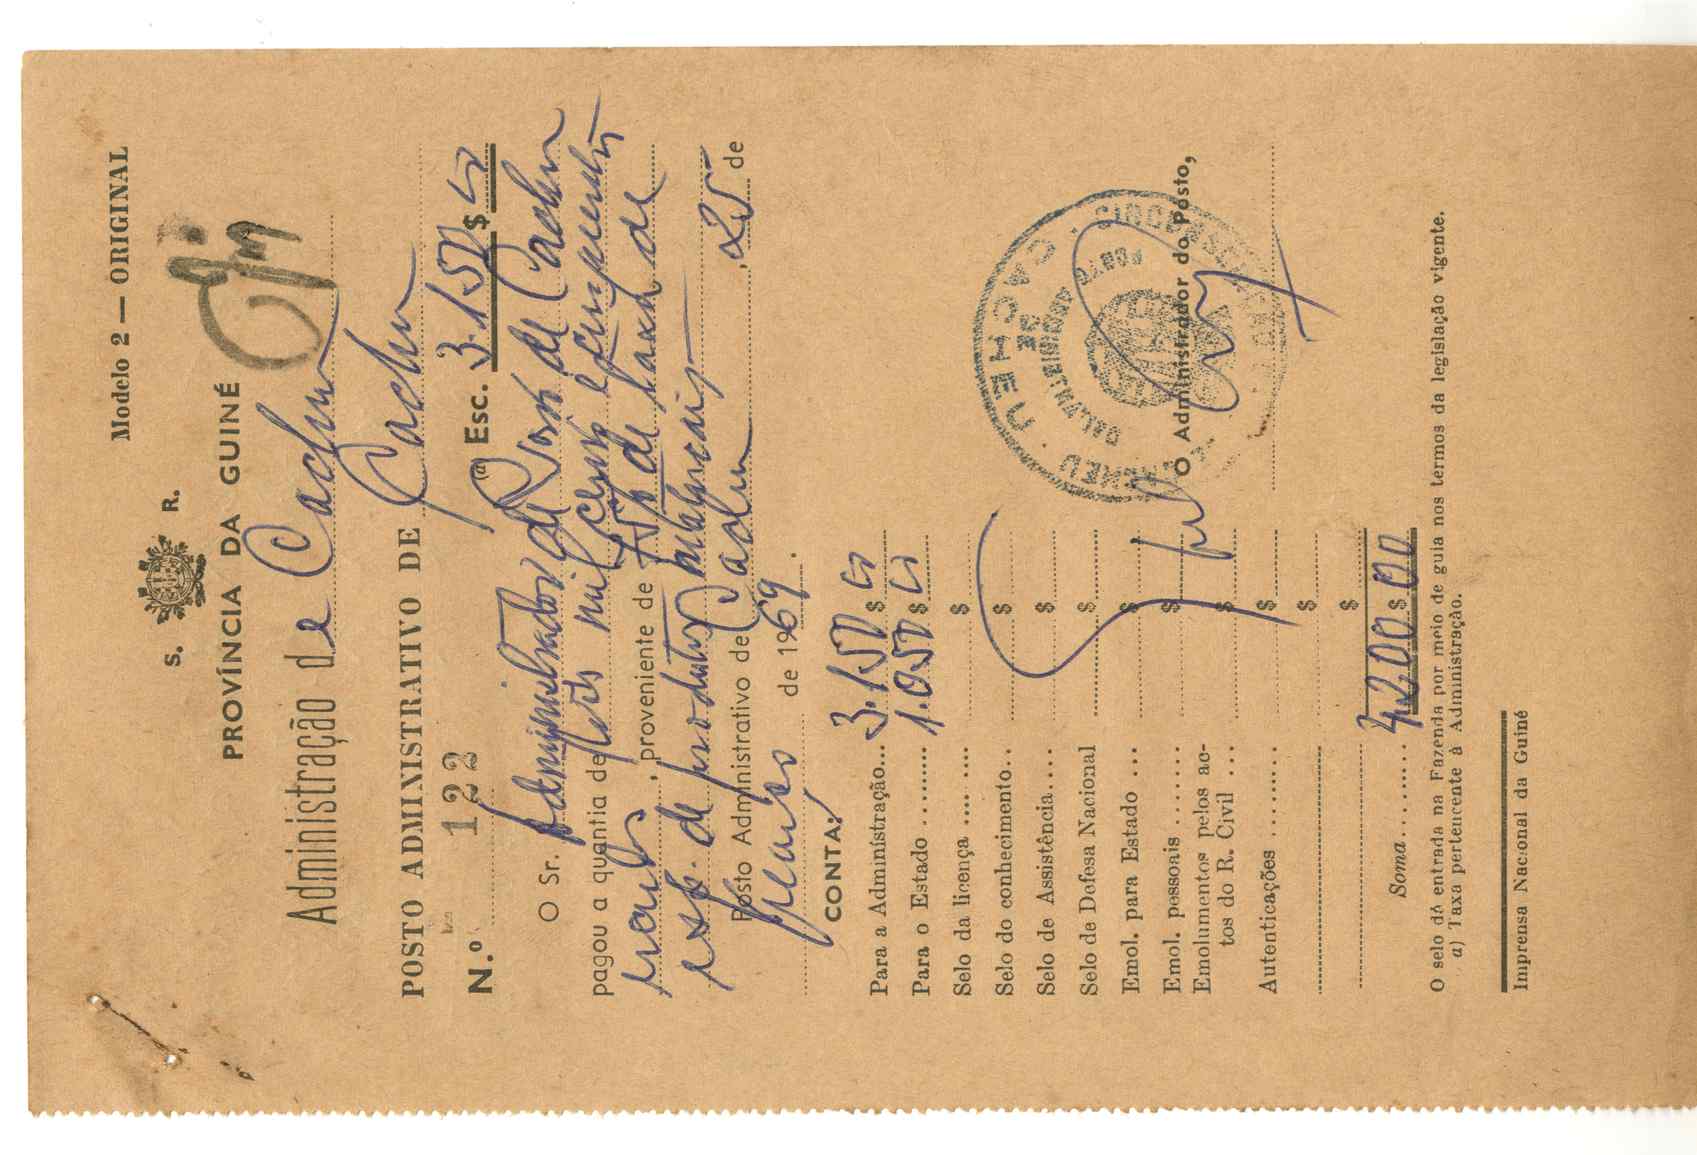 Modelo 2 — ORIGINAL
S. R.
PROVÍNCIA DA GUINÉ
Administração de Cacheu
POSTO ADMINISTRATIVO DE Cacheu
N.º 122 (a) Esc. 3.150 $
O Sr. Administrador do Posto de Cacheu
pagou a quantia de três mil cento e cinquenta
escudos, proveniente de taxa de
de produtos
Posto Administrativo de Cacheu, 25 de
de 1969.
CONTA:
Para a Administração... 3.150 $
Para o Estado ......... 1.050 $
Selo da licença .... .... $
Selo do conhecimento.. $
Selo de Assistência.... $
Selo de Defesa Nacional $
Emol. para Estado ... $
Emol. pessoais ....... $
Emolumentos pelos ac-
tos do R. Civil ... $
Autenticações ......... $
$
$
Soma........ 4.200 $ 00
CACHEU
O Administrador do Posto,
O selo dá entrada na Fazenda por meio de guia nos termos da legislação vigente.
a) Taxa pertencente à Administração.
Imprensa Nacional da Guiné